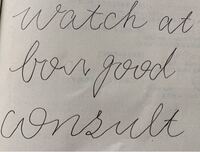 watch at
box good
consult